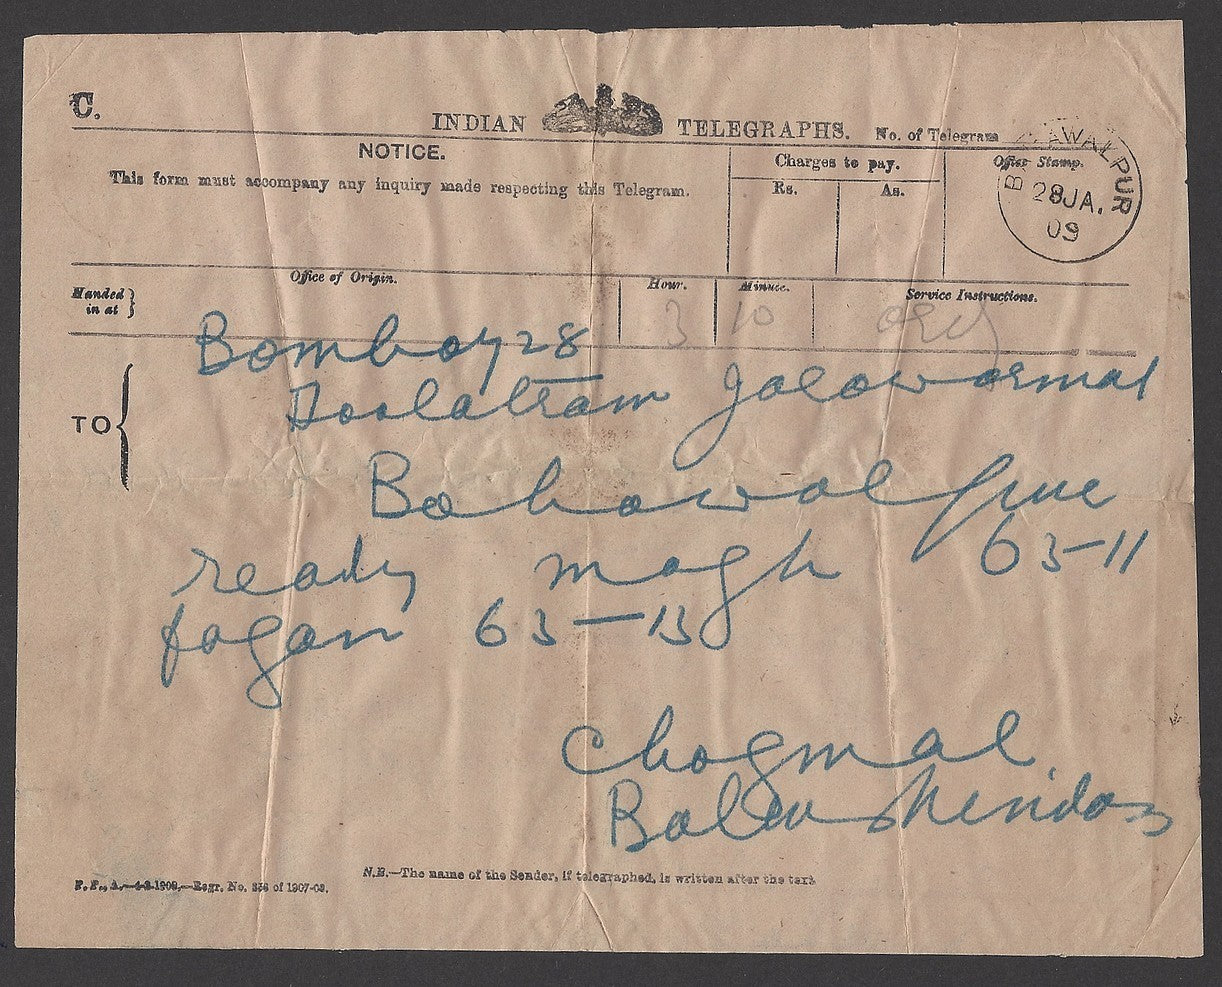 C.
INDIAN TELEGRAPHS. No. of Telegram
NOTICE.
This form must accompany any inquiry made respecting this Telegram.
Charges to pay.
Rs. As.
Office Stamp.
BAHAWALPUR
28JA.
09
Handed in at }
Office of Origin.
Hour. Minute. Service Instructions.
3 10
Bombay 28
TO {
Doolatram
Bahawalpur
ready magh 63-11
fagan 63-13
Chogmal
N.B.—The name of the Sender, if telegraphed, is written after the text
Regr. No. 336 of 1907-08.